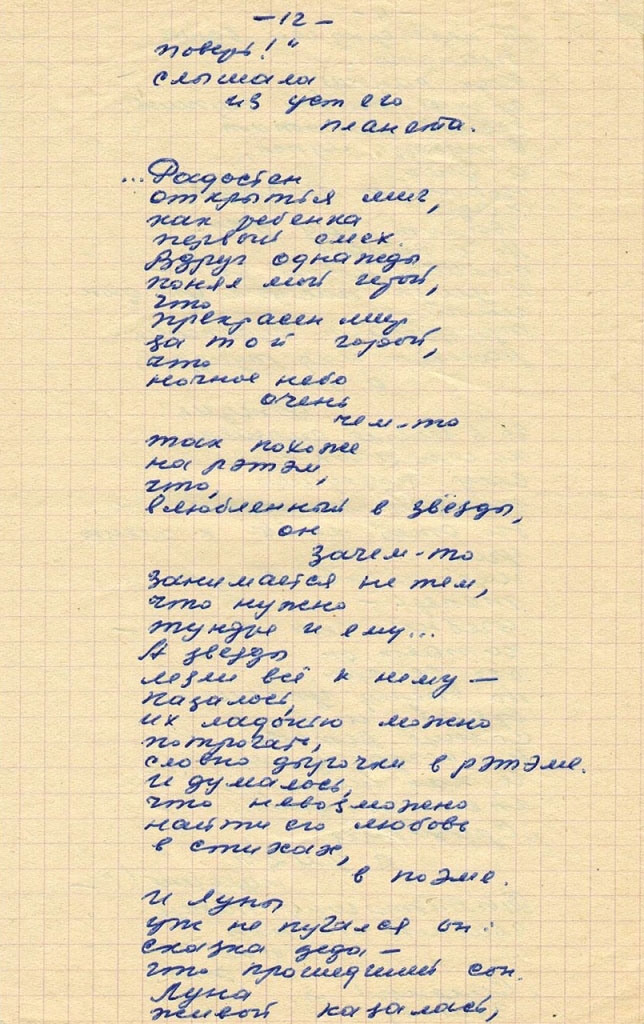 - 12 -
поверь!"
слышала
из уст его
планета.
...Радостен
открытья миг,
как ребенка
первый смех.
Вдруг однажды
понял мой герой,
что
прекрасен мир
за той горой,
что
ночное небо
очень
чем-то
так похоже
на рэтэм,
что,
влюбленный в звёзды,
он
зачем-то
занимается не тем,
что нужно
тундре и ему...
А звезды
лезли всё к нему —
казалось,
их ладонью можно
потрогать,
словно дырочки в рэтэме.
И думалось,
что невозможно
найти его любовь
в стихах,
в поэме.
И Луны
уж не пугался он:
сказка деда —
что прошедший сон.
Луна
живой казалась,